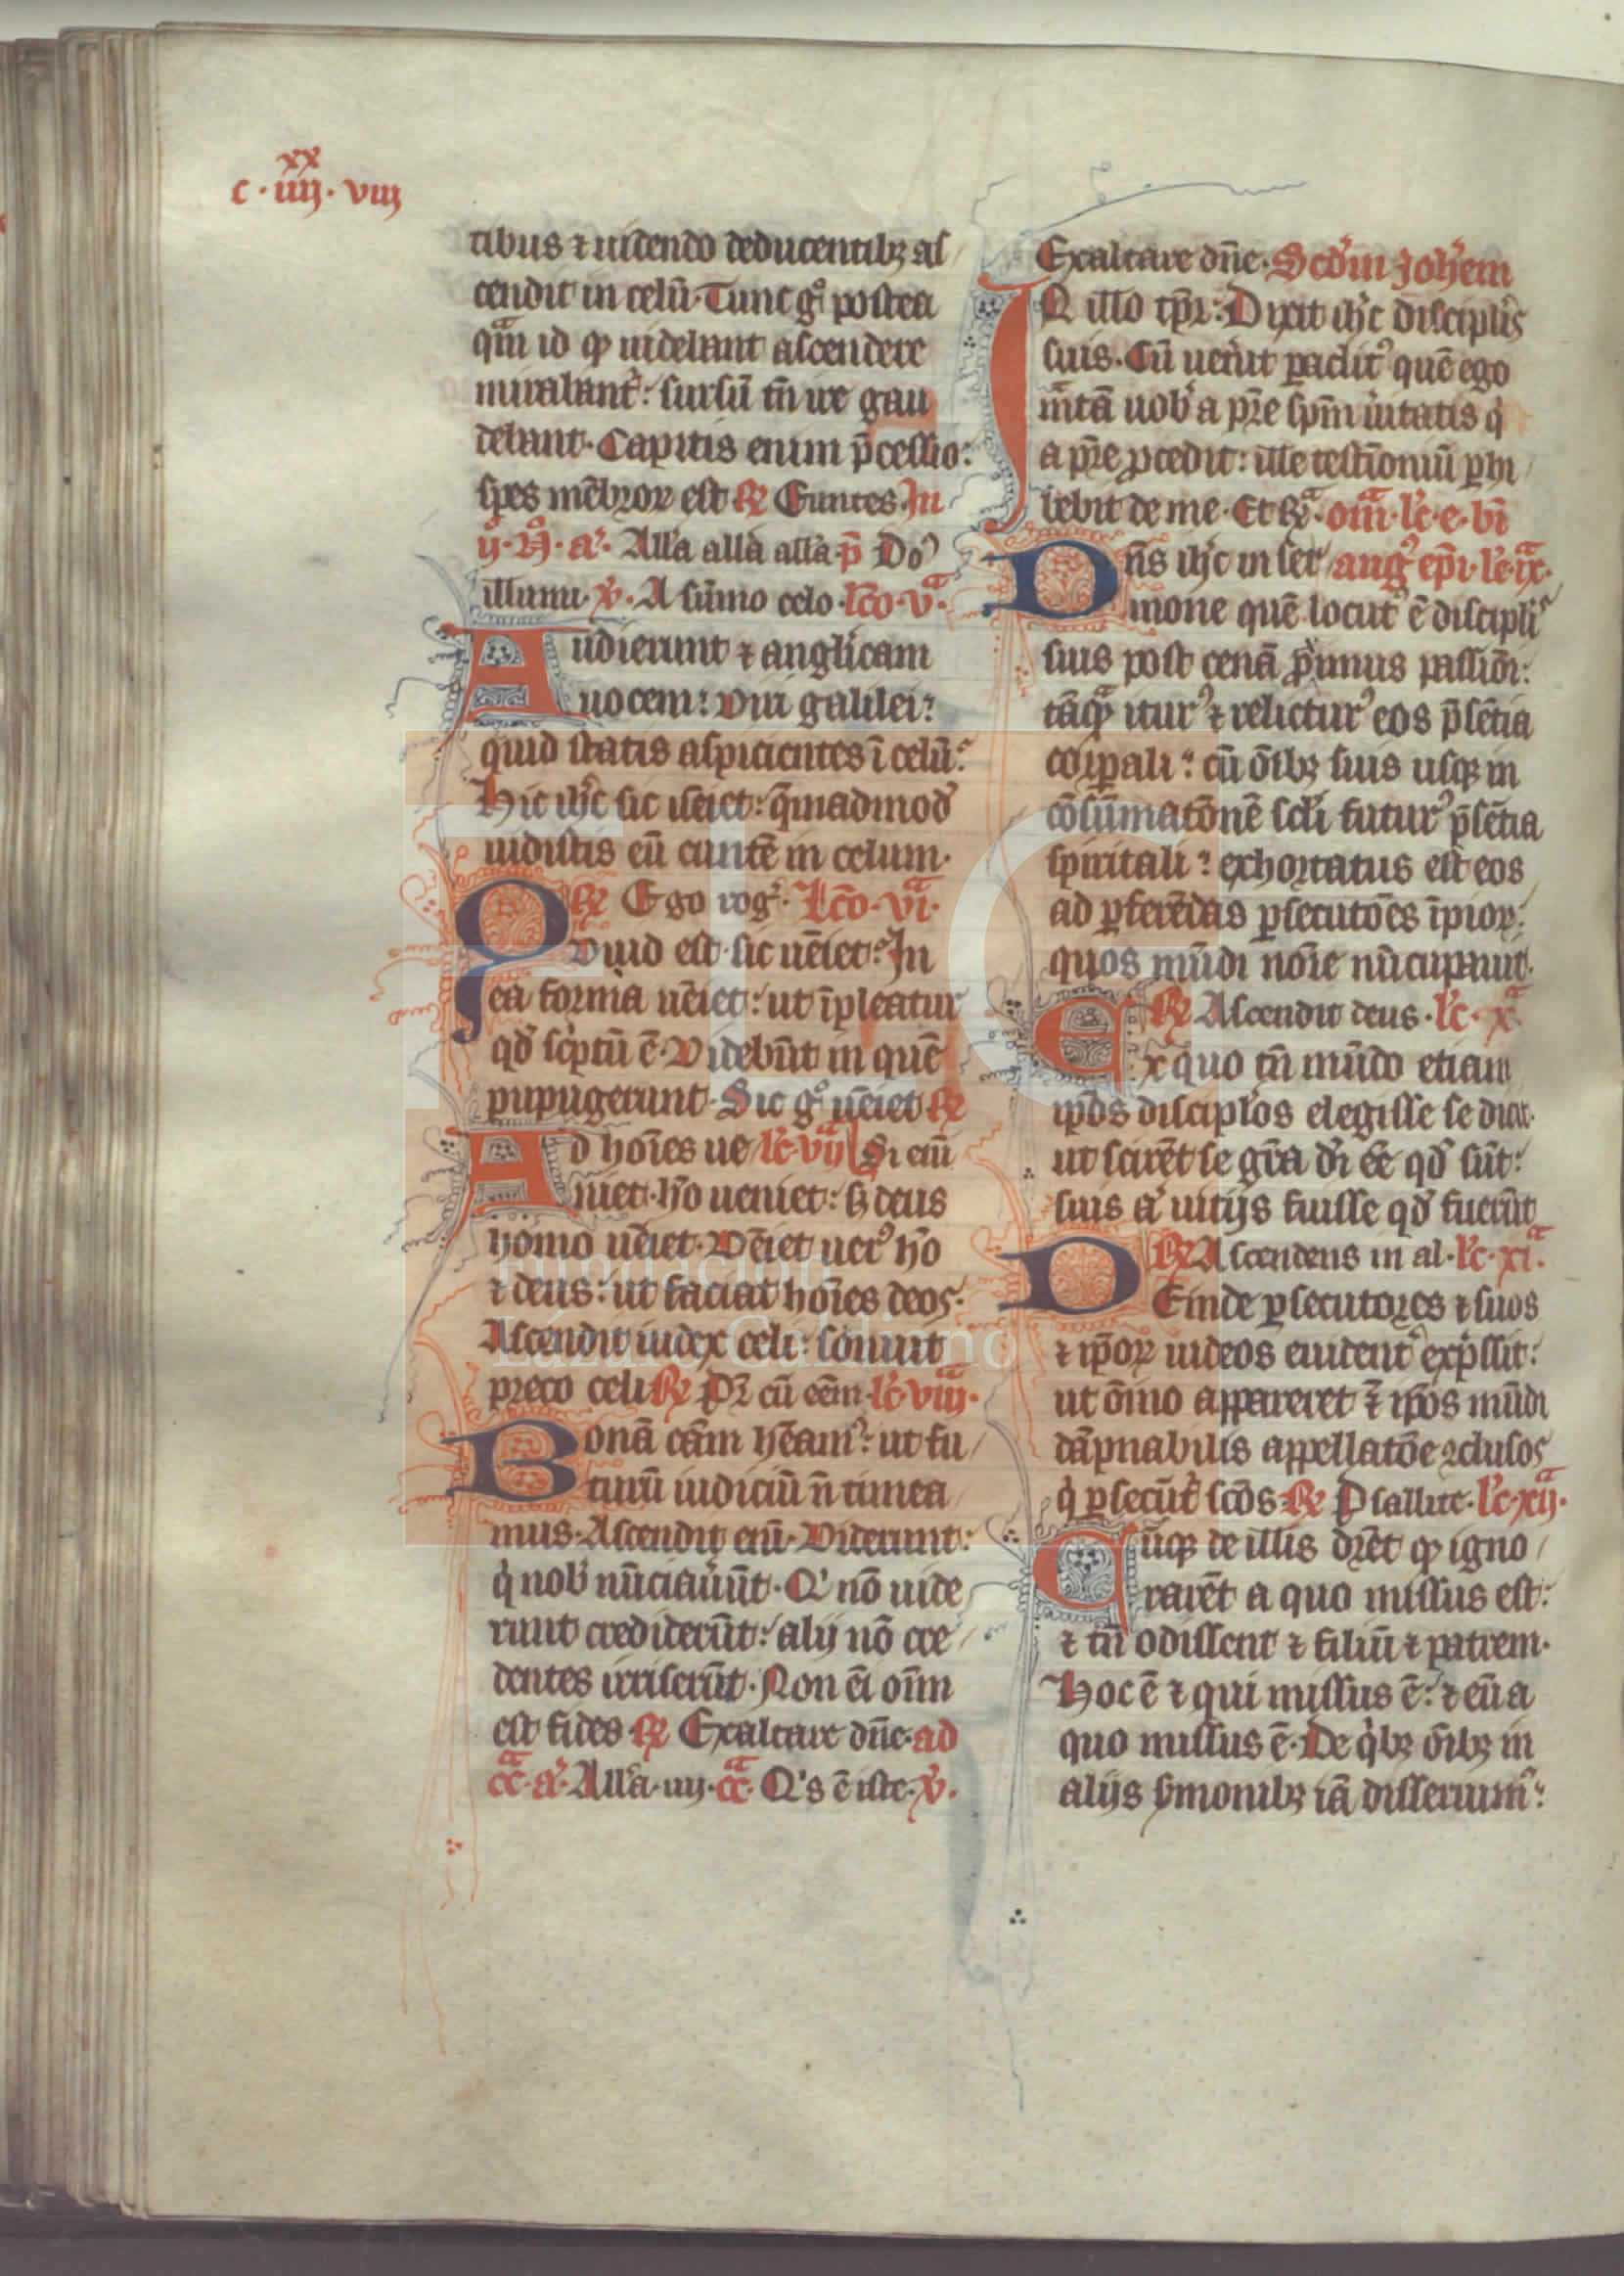 xx
c · iiij · viij
tibus ⁊ uidendo deducentibꝫ as
cendit in celū. Tunc gͦ postea
qͣm id ꝙ uidebant ascendere
mirabant᷑: sursū tn̄ ire gau
debant. Capitis enim p̄cessio:
spes mēbroꝝ est ℟ Euntes. In
ij. N̄. aͣ. All'a all'a all'a. p̄ Do
illumi. ℣. A sūmo celo. lc̄o. vͣ.
Audierunt ⁊ angl'icam
uocem: viri galilei?
quid statis aspicientes ī celū?
Hic ih'c sic ueīet: q̄madmod'
uidistis eū euntē in celum.
℟ Ego rog. Lc̄o. viͣ.
Quid est. sic uēiet? In
ea forma uēiet: ut īpleatur
qd' sc'ptū ē. Videbūt in quē
pupugerunt. Sic gͦ uēiet ℟
Ad hoīes ue lc̄. vijͣ Si eīū
niet. ho ueniet: sꝫ deus
homo uēiet. Vēiet ueꝰ ho
⁊ deus: ut faciat hoīes deos.
Ascendit iudex celi: sonuit
preco celi ℟ Pr̄ cū eēm. lc̄. viijͣ.
Bonā cām h'eamꝰ: ut fu
turū iudiciū n̄ timea
mus. Ascendit eīū. Viderunt:
q' nob' nūciauer̄ūt. Q' nō uide
runt crediderūt: alij nō cre
dentes irriserūt. Non eī oīm
est fides ℟ Exaltare dn̄e. ad
cc̄. aͣ. All'a. iij. cc̄. Q's ē iste. ℣.
Exaltare dn̄e. Scd'm Joh'em
IN illo tp̄r: Dixit ih'c discipl'is
suis. Cū uen'it ꝑaclitꝰ quē ego
mͥtā uob' a pr̄e sp̄m ūitatis q'
a pr̄e ꝓcedit: ille testīoniū ꝑhi
bebit de me. Et Rͣ. om̄. l'c. e. bi
Dn̄s ih'c in ser augꝰ ep̄i. lc̄. ixͣ.
mone quē locutꝰ ē discipl'is
suis post cenā ꝓximus passiōi:
tāqͣꝫ iturꝰ ⁊ relicturꝰ eos p̄sētia
corꝑali: cū oībꝫ suis usqꝫ in
cōsūmatōnē sc'li futurꝰ p̄sētia
spiritali: exhortatus est eos
ad ꝑferēdas ꝑsecutōes īpioꝝ:
quos mūdi noīe nūcupauit.
℟ Ascendit deus. lc̄. xͣ
Ex quo tn̄ mūdo etiam
ip̄os discipl'os elegisse se dix̄.
ut scirēt se gr̄a d'i eē qd' sūt:
suis aͭ uitijs fuisse qd' fuerūt
℟ Ascendens in al. lc̄. xiͣ.
Deinde ꝑsecutores ⁊ suos
⁊ ip̄oꝝ iudeos euident' exp̄ssit:
ut oīno appareret ⁊ ip̄os mūdi
dāpnabilis appellatōe ꝯclusos
q' ꝑsecūt' sc̄os. ℟ Psallite. lc̄. xijͣ.
Cūqꝫ de illis dr̄et ꝙ igno
rarēt a quo missus est:
⁊ tn̄ odissent ⁊ filiū ⁊ patrem.
Hoc ē ⁊ qui missus ē: ⁊ eū a
quo missus ē. De q'bꝫ oībꝫ in
alijs ẜmonibꝫ iā disseruimꝰ:
FLG
Fundación
Lázaro Galdiano